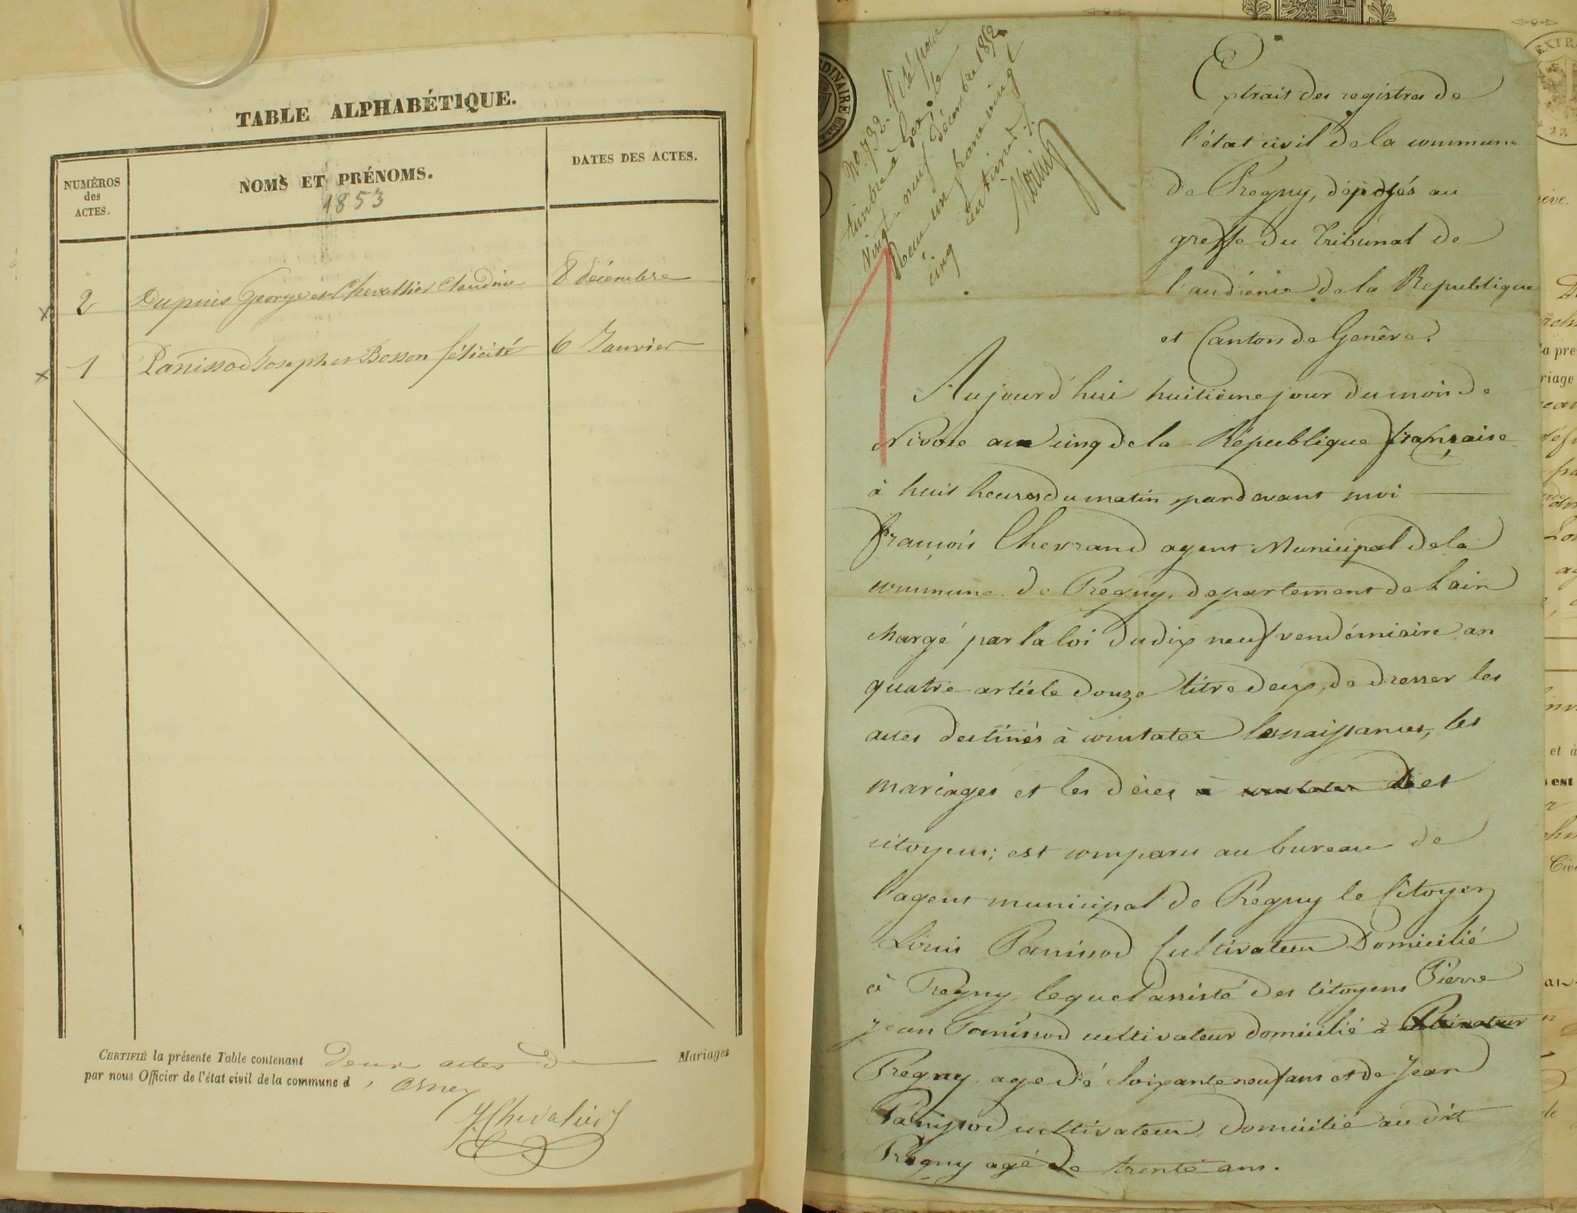 TABLE ALPHABÉTIQUE.
NUMÉROS
des
ACTES.
NOMS ET PRÉNOMS.
1853
DATES DES ACTES.
2 Dupuis George et Chevallier Claudine 8 décembre
1 Panissod Joseph et Bosson félicité 6 Janvier
CERTIFIÉ la présente Table contenant deux actes de Mariages
par nous Officier de l'état civil de la commune d'Ornex
J Chevalier
No 732. Visé pour
timbre à Gex le
vingt neuf décembre 1852
Reçu un franc vingt
cinq centimes
Extrait des registres de
l'état civil de la commune
de Pregny, déposés au
greffe du Tribunal de
l'audience de la Republique
et Canton de Genève.
Aujourd'hui huitième jour du mois de
Nivose an cinq de la République française
à huit heures du matin pardevant moi
françois Chevrand agent Municipal de la
commune de Pregny, departement de Lain
chargé par la loi du dix neuf vendémiaire an
quatre article douze titre deux, de dresser les
actes destinés à constater les naissances, les
mariages et les décès à constater des
citoyens; est comparu au bureau de
l'agent municipal de Pregny le Citoyen
Louis Panissod Cultivateur Domicilié
à Pregny lequel assisté des citoyens Pierre
Jean Panissod cultivateur domicilié à
Pregny agé de soixante neuf ans et de Jean
Panissod cultivateur domicilié au dit
Pregny agé de trente ans.